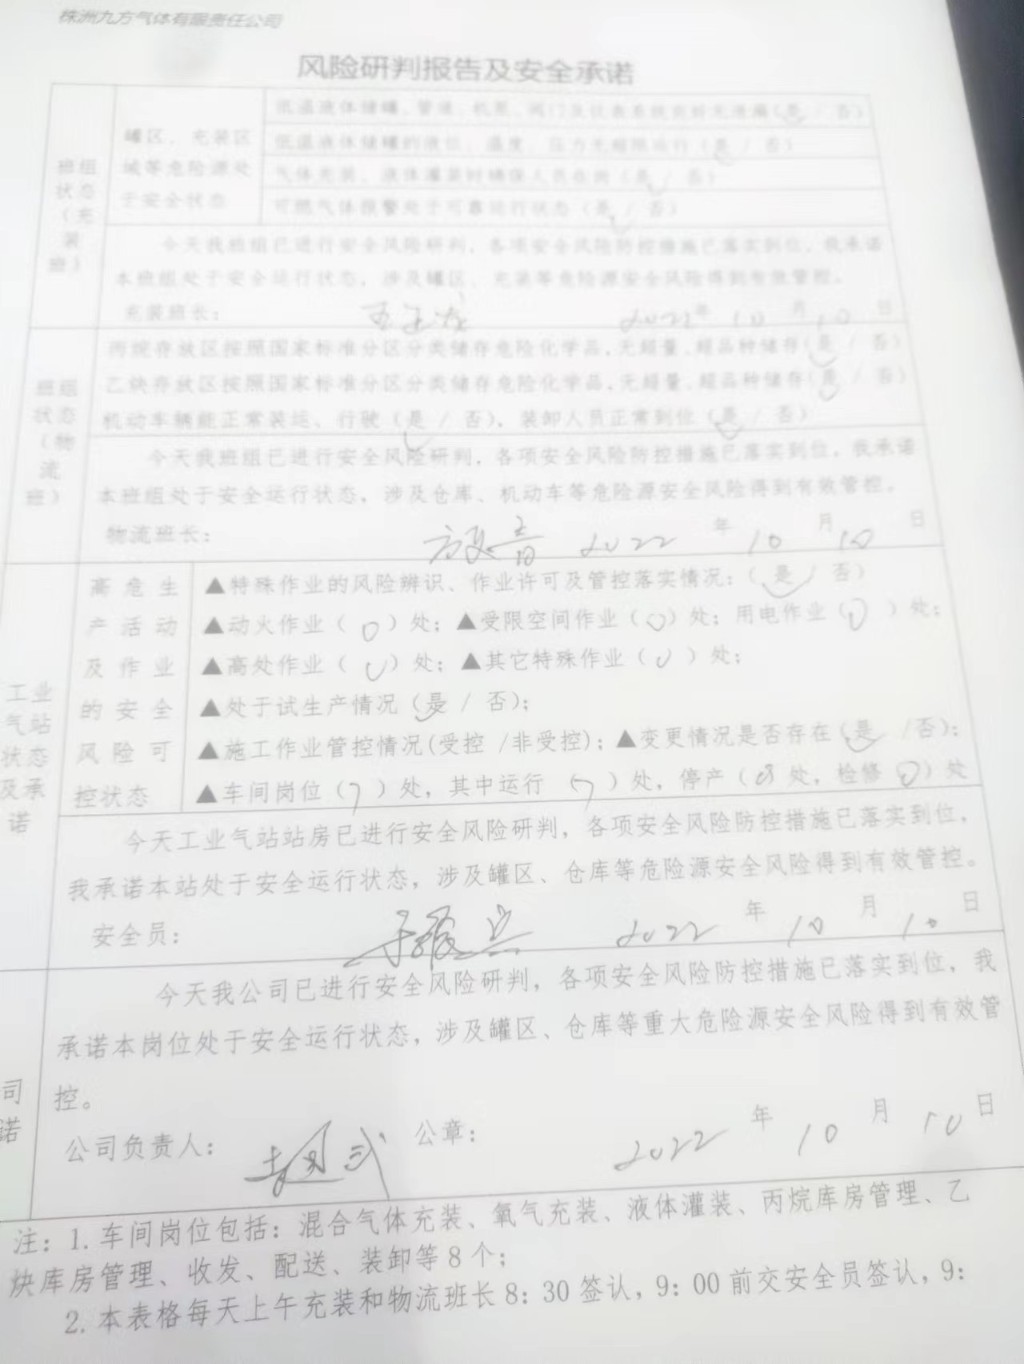 株洲九方气体有限责任公司
风险研判报告及安全承诺
班组状态（充装班）
罐区、充装区域等危险源处于安全状态
低温液体储罐、管道、机泵、阀门及仪表系统完好无泄漏（是 / 否）
低温液体储罐的液位、温度、压力无超限运行（是 / 否）
气体充装、液体灌装时确保人员在岗（是 / 否）
可燃气体报警处于可靠运行状态（是 / 否）
今天我班组已进行安全风险研判，各项安全风险防控措施已落实到位，我承诺
本班组处于安全运行状态，涉及罐区、充装等危险源安全风险得到有效管控。
充装班长： 2022年 10 月 10 日
班组状态（物流班）
丙烷存放区按照国家标准分区分类储存危险化学品，无超量、超品种储存（是 / 否）
乙炔存放区按照国家标准分区分类储存危险化学品，无超量、超品种储存（是 / 否）
机动车辆能正常装运、行驶（是 / 否），装卸人员正常到位（是 / 否）
今天我班组已进行安全风险研判，各项安全风险防控措施已落实到位，我承诺
本班组处于安全运行状态，涉及仓库、机动车等危险源安全风险得到有效管控。
物流班长： 2022 年 10 月 10 日
工业气站状态及承诺
高危生产活动及作业的安全风险可控状态
▲特殊作业的风险辨识、作业许可及管控落实情况：（是 / 否）
▲动火作业（ 0 ）处；▲受限空间作业（0）处；用电作业（0 ）处；
▲高处作业（ 0 ）处；▲其它特殊作业（ 0 ）处；
▲处于试生产情况（是 / 否）；
▲施工作业管控情况(受控 /非受控)；▲变更情况是否存在（是 /否）；
▲车间岗位（7 ）处，其中运行 7 ）处，停产（0 处，检修 0 ）处
今天工业气站站房已进行安全风险研判，各项安全风险防控措施已落实到位，
我承诺本站处于安全运行状态，涉及罐区、仓库等危险源安全风险得到有效管控。
安全员： 2022 年 10 月 10 日
司
诺
今天我公司已进行安全风险研判，各项安全风险防控措施已落实到位，我
承诺本岗位处于安全运行状态，涉及罐区、仓库等重大危险源安全风险得到有效管
控。
公司负责人： 公章： 2022 年 10 月 10 日
注：1.车间岗位包括：混合气体充装、氧气充装、液体灌装、丙烷库房管理、乙
炔库房管理、收发、配送、装卸等8个；
2.本表格每天上午充装和物流班长8：30签认，9：00前交安全员签认，9：